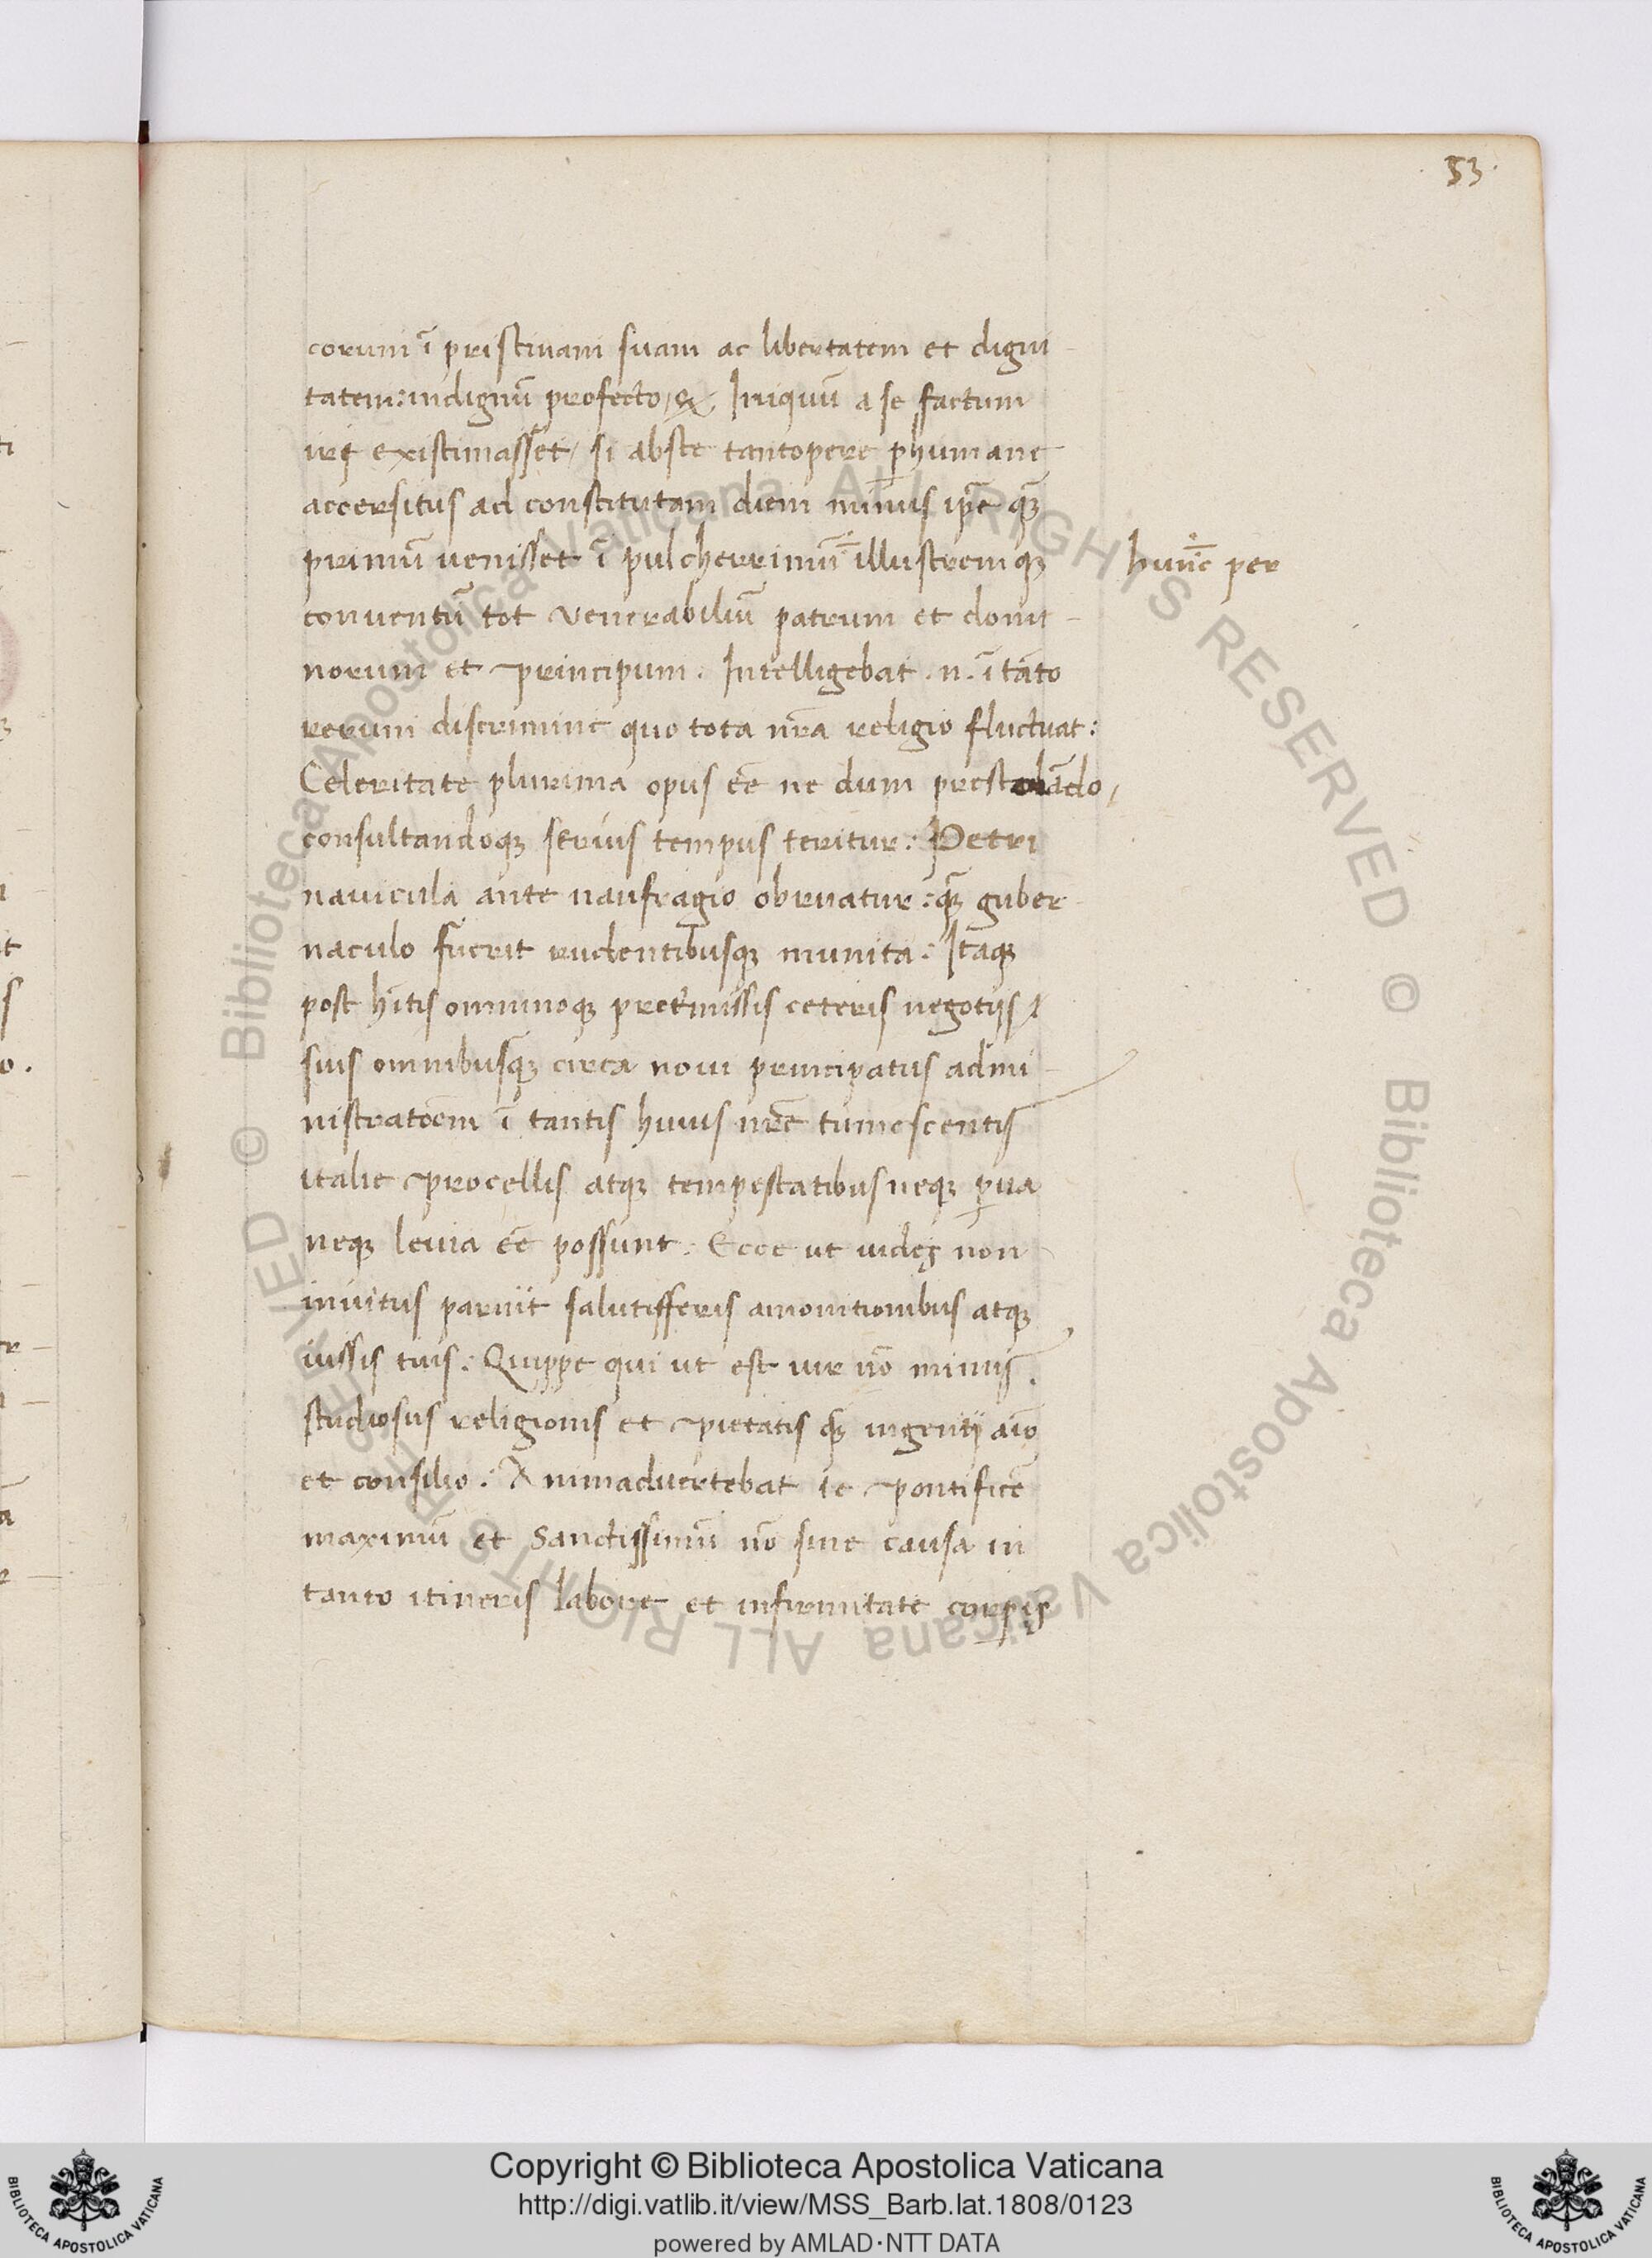 53
corum ī pristinam suam ac libertatem et digni
tatem: indignū profecto, & Iniquū a se factum
iri existimasset, si abste tantopere perhumane
accersitus ad constitutam diem minus ip̄e qꝫ
primū uenisset ī pulcherrimū illustremqꝫ
hunc per
conuentū tot venerabiliū patrum et domi
norum et principum. Intelligebat .n. ī tāto
rerum discrimine quo tota nr̄a religio fluctuat:
Celeritate plurima opus ēē ne dum prestolādo,
consultandoqꝫ serius tempus teritur: Petri
nauicula ante naufragio obruatur: qꝫ guber
naculo fuerit rudentibusqꝫ munita: Itaqꝫ
post hitis omninoqꝫ pretermissis ceteris negotijs
suis omnibusqꝫ circa noui principatus admi
nistratōem ī tantis huius nr̄e tumescentis
italie procellis atqꝫ tempestatibus neqꝫ ꝑua
neqꝫ leuia ēē possunt. Ecce ut uides non
inuitus paruit salutifferis amonitionibus atqꝫ
iussis tuis: Quippe qui ut est uir nō minus
studiosus religionis et pietatis qꝫ ingentij aīo
et consilio: Animaduertebat te pontificē
maximū et Sanctissimū nō sine causa in
tanto itineris labore et infirmitate corpis
Copyright © Biblioteca Apostolica Vaticana
http://digi.vatlib.it/view/MSS_Barb.lat.1808/0123
powered by AMLAD·NTT DATA